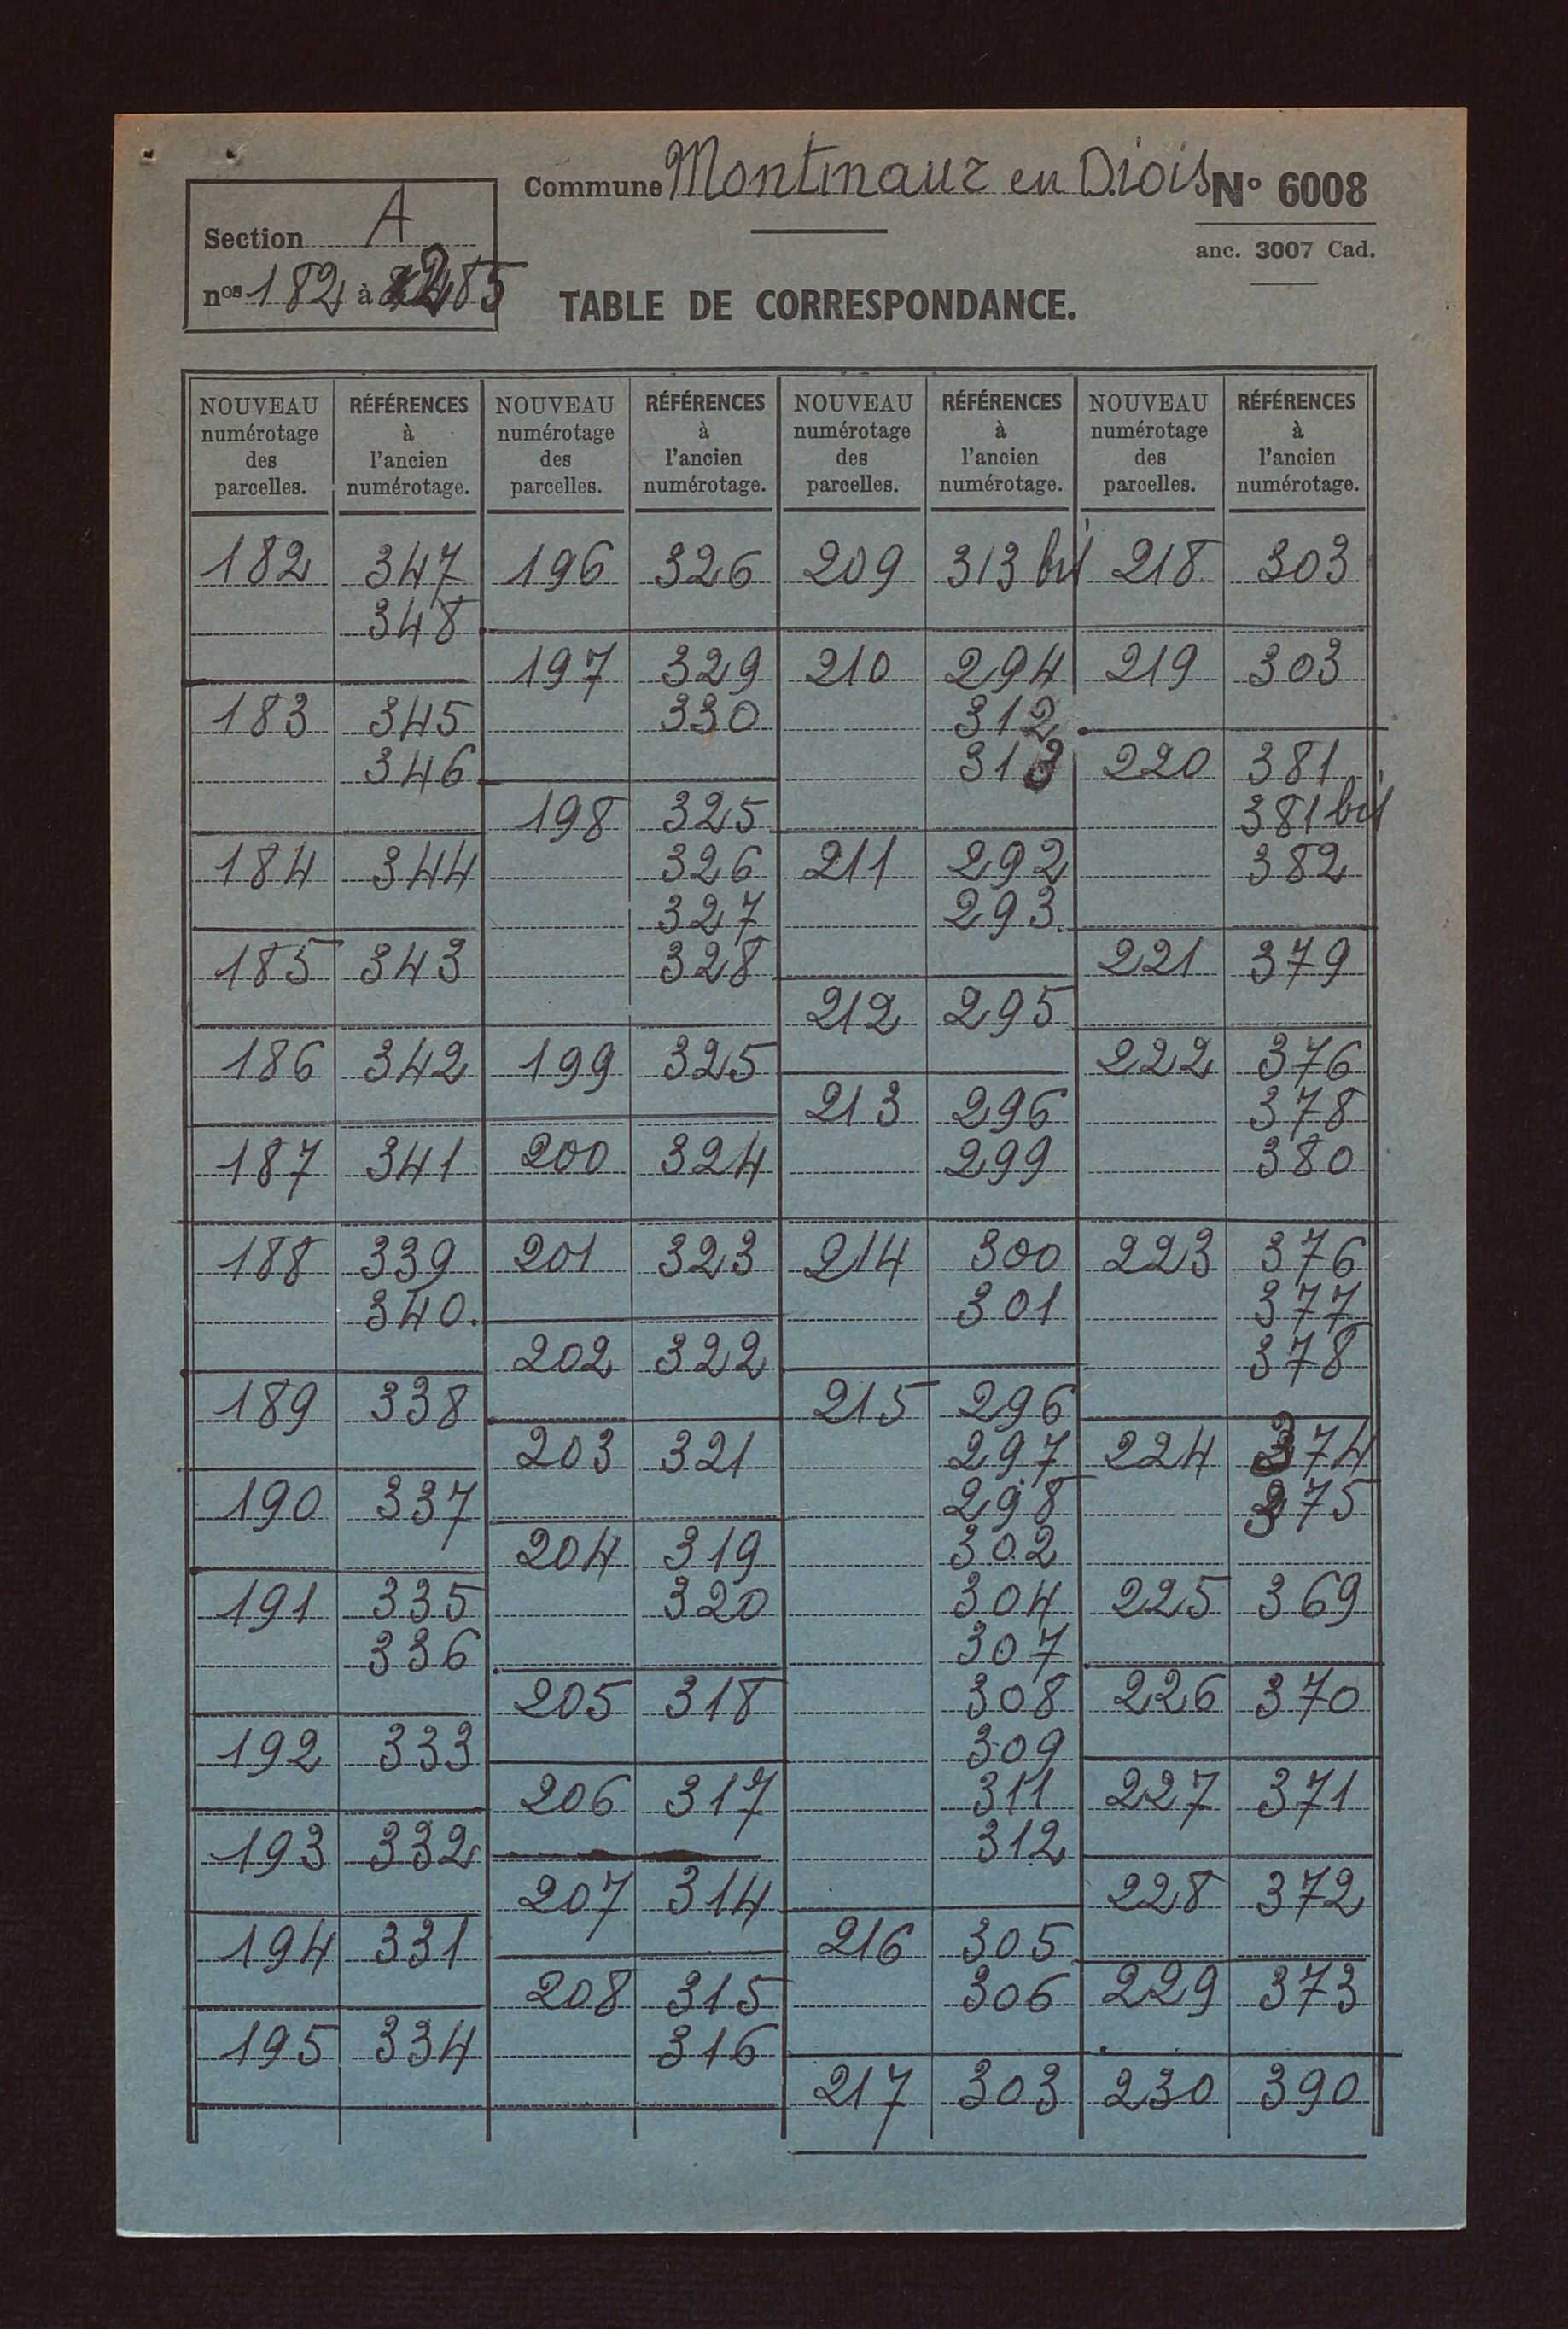 Commune Montmaur en Diois N° 6008
anc. 3007 Cad.
Section A
nos 182 à 285
TABLE DE CORRESPONDANCE.
NOUVEAU numérotage des parcelles. | RÉFÉRENCES à l'ancien numérotage. | NOUVEAU numérotage des parcelles. | RÉFÉRENCES à l'ancien numérotage. | NOUVEAU numérotage des parcelles. | RÉFÉRENCES à l'ancien numérotage. | NOUVEAU numérotage des parcelles. | RÉFÉRENCES à l'ancien numérotage.
182 347
348
183 345
346
184 344
185 343
186 342
187 341
188 339
340.
189 338
190 337
191 335
336
192 333
193 332
194 331
195 334
196 326
197 329
330
198 325
326
327
328
199 325
200 324
201 323
202 322
203 321
204 319
320
205 318
206 317
207 314
208 315
316
209 313 bis
210 294
312
313
211 292
293.
212 295
213 296
299
214 300
301
215 296
297
298
302
304
307
308
309
311
312
216 305
306
217 303
218 303
219 303
220 381
381 bis
382
221 379
222 376
378
380
223 376
377
378
224 374
375
225 369
226 370
227 371
228 372
229 373
230 390